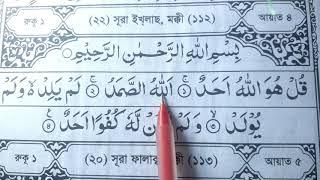 রুকু ১ (২২) সূরা ইখলাছ, মক্কী (১১২) আয়াত ৪
بِسْمِ اللهِ الرَّحْمٰنِ الرَّحِيْمِ
قُلْ هُوَ اللهُ اَحَدٌ ۚ ① اَللهُ الصَّمَدُ ۚ ② لَمْ يَلِدْ ۙ وَلَمْ
يُوْلَدْ ۙ ③ وَلَمْ لَّهٗ كُفُوًا اَحَدٌ ④
রুকু ১ (২০) সূরা ফালা (১১৩) আয়াত ৫